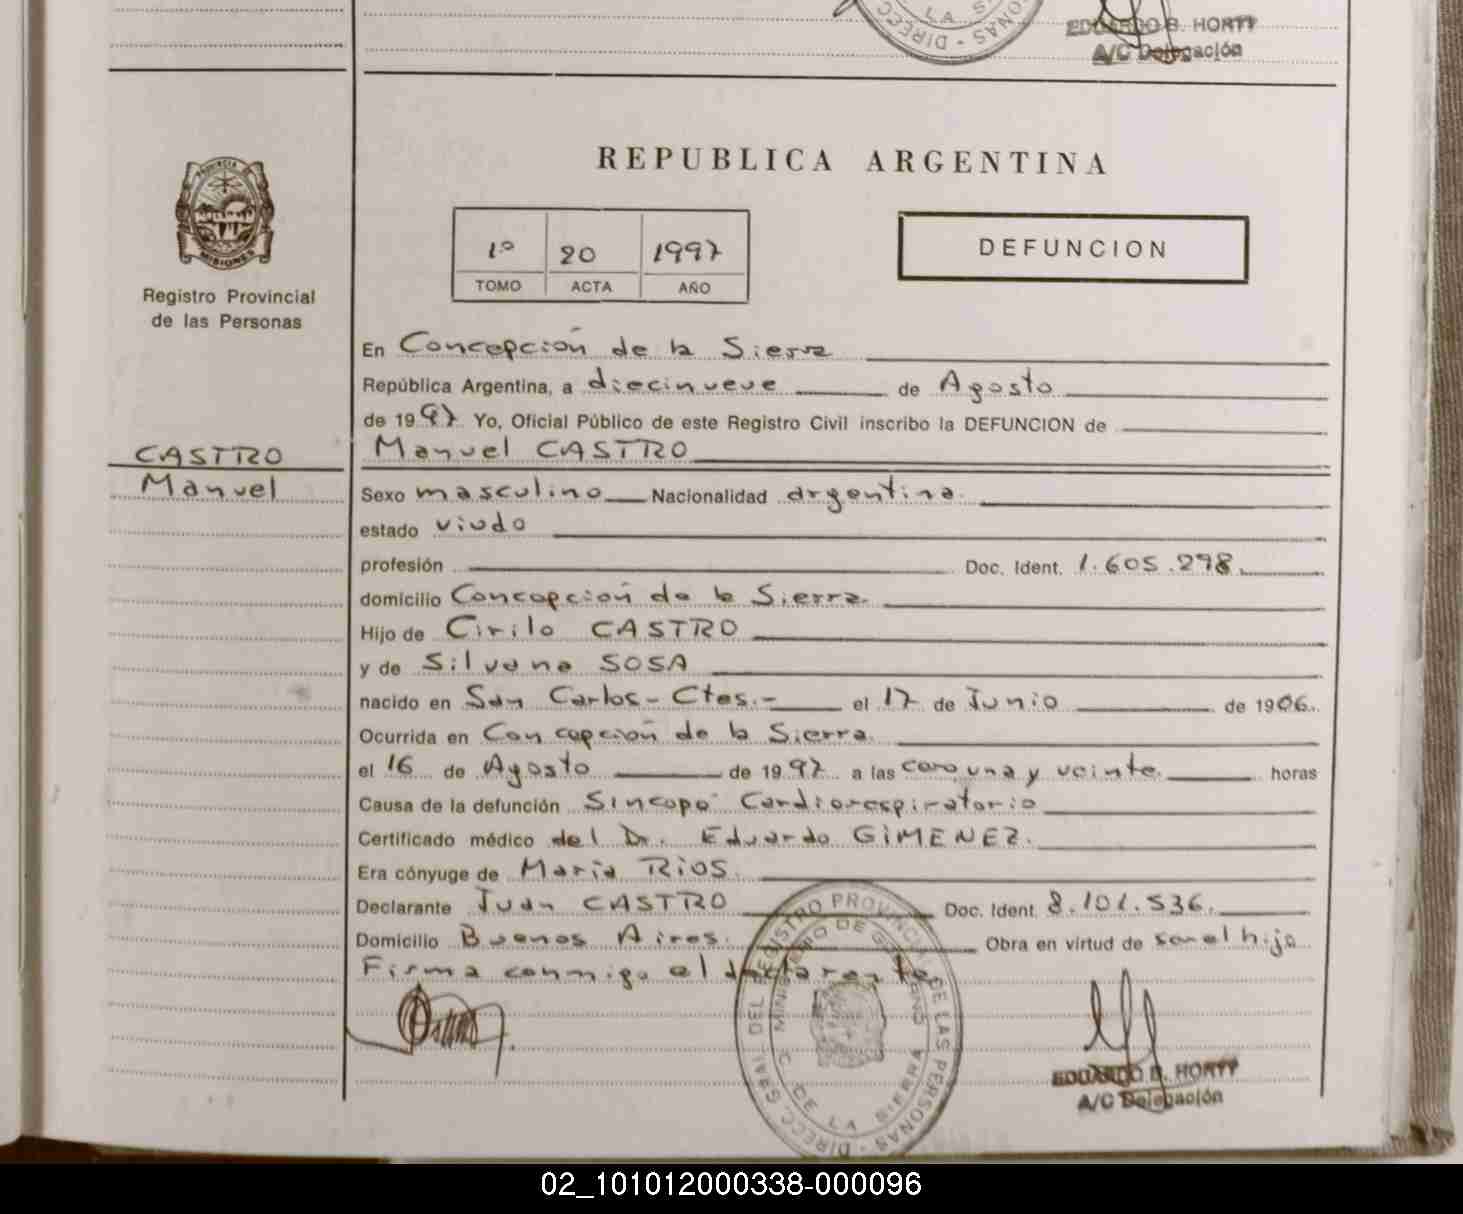 EDUARDO B. HORTT
A/C Delegación
REPUBLICA ARGENTINA
PROVINCIA DE
MISIONES
Registro Provincial
de las Personas
1º 20 1997
TOMO ACTA AÑO
DEFUNCION
En Concepción de la Sierra
República Argentina, a diecinueve de Agosto
de 1997 Yo, Oficial Público de este Registro Civil inscribo la DEFUNCION de
CASTRO
Manuel
Manuel CASTRO
Sexo masculino Nacionalidad argentina.
estado viudo
profesión Doc. Ident. 1.605.298.
domicilio Concepción de la Sierra.
Hijo de Cirilo CASTRO
y de Silvana SOSA
nacido en San Carlos - Ctes.- el 17 de Junio de 1906.
Ocurrida en Concepción de la Sierra.
el 16 de Agosto de 1997 a las cero una y veinte. horas
Causa de la defunción Sincope Cardiorespiratorio
Certificado médico del Dr. Eduardo GIMENEZ.
Era cónyuge de Maria RIOS.
Declarante Juan CASTRO Doc. Ident. 8.101.536.
Domicilio Buenos Aires. Obra en virtud de ser el hijo
Firma conmigo el declarante
DIRECC. GRAL. DEL REGISTRO PROVINCIAL DE LAS PERSONAS
MINISTERIO DE GOBIERNO
C. DE LA SIERRA
EDUARDO B. HORTT
A/C Delegación
02_101012000338-000096